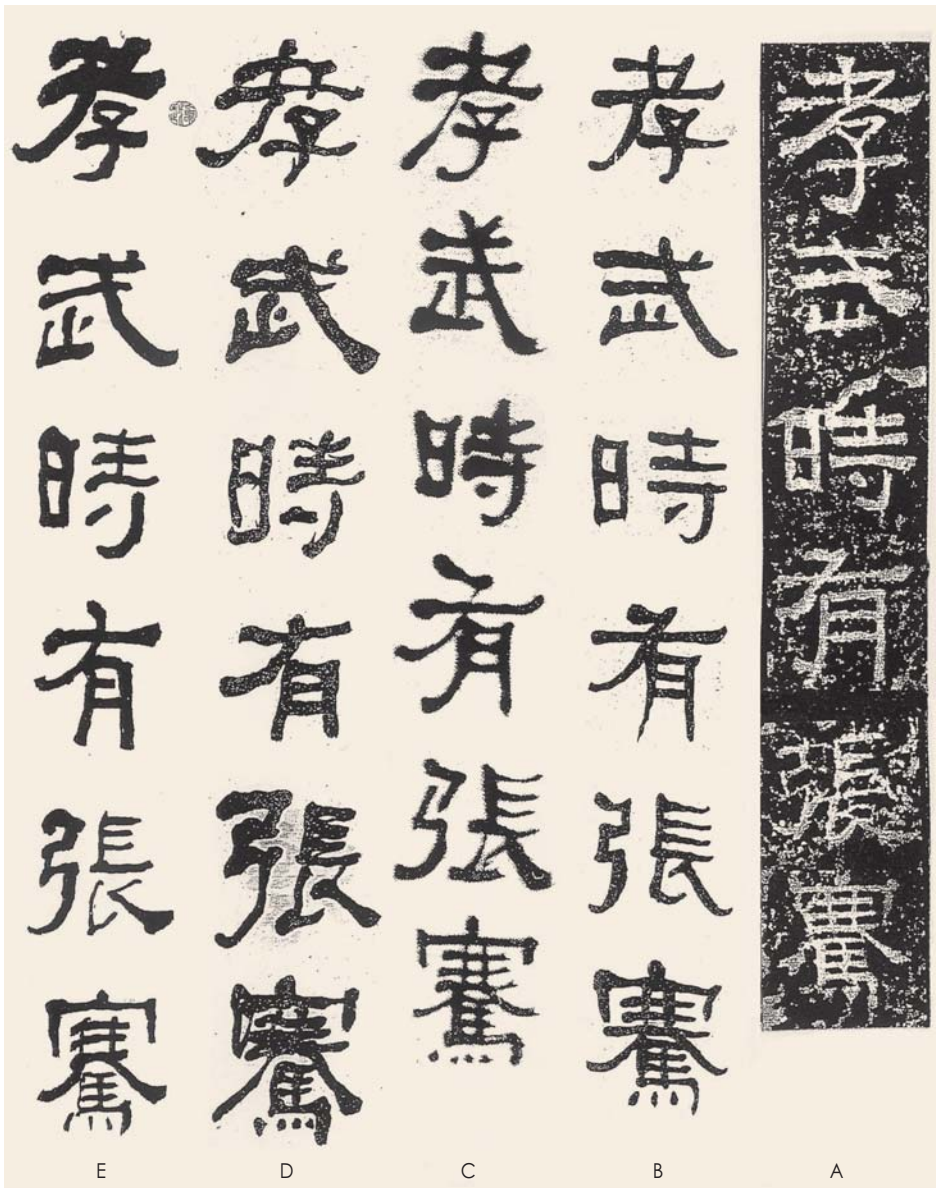 孝武時有張騫
孝武時有張騫
孝武時有張騫
孝武時有張騫
孝武時有張騫
A
B
C
D
E